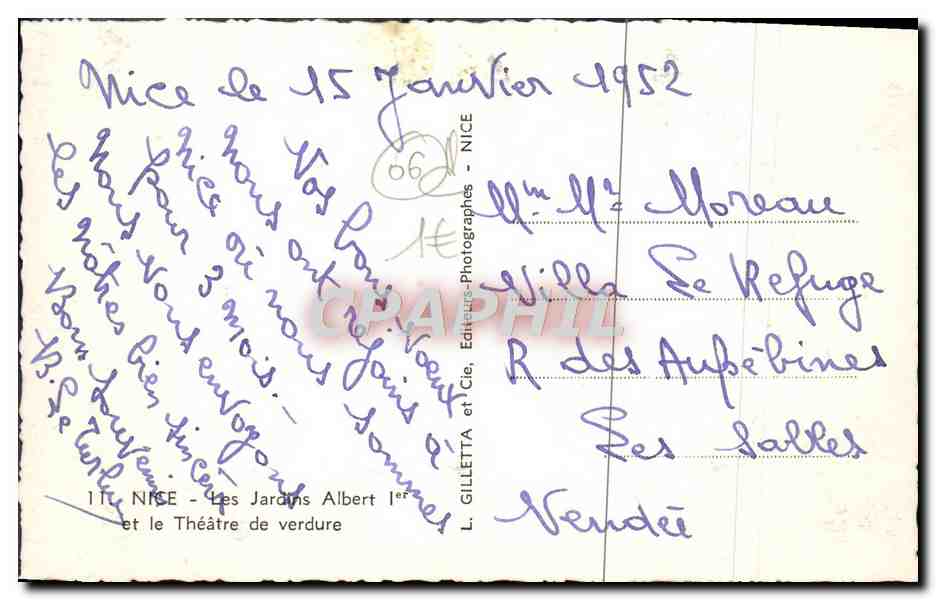 Nice le 15 Janvier 1952
Vos bons Voeux
nous ont rejoins à
Nice où nous sommes
pour 3 mois. -
Nous Vous envoyons
les nôtres bien sincères
Bon Souvenir
06
1€
Mm Mr Moreau
Villa Le Refuge
R des Aubépines
Les Sables
Vendée
L. GILLETTA et Cie, Editeurs-Photographes - NICE
CPAPHIL
11. NICE - Les Jardins Albert Ier
et le Théâtre de verdure